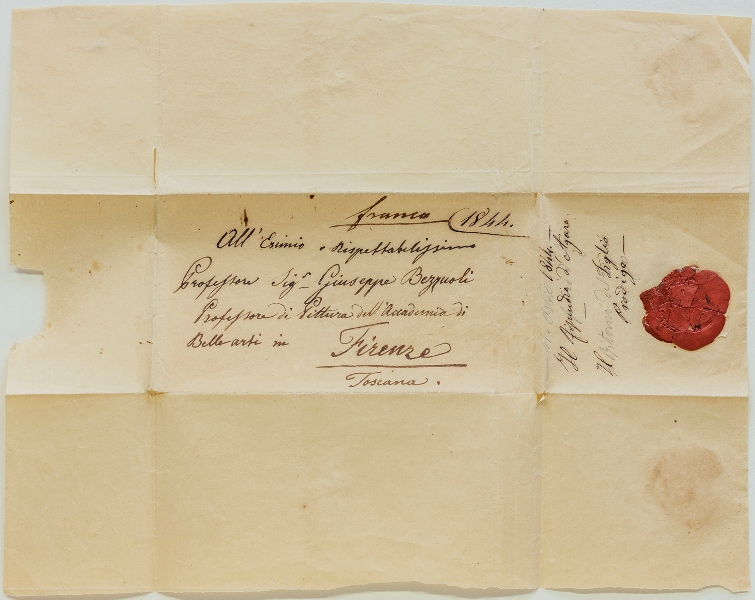 franco 1844.
All' Esimio e Rispettabilissimo
Professore Sig.r Giuseppe Bezzuoli
Professore di Pittura dell'Accademia di
Belle arti in Firenze
Toscana.
1844
Il Ripudio d'Agar
Il ritorno del Figlio
Prodigo